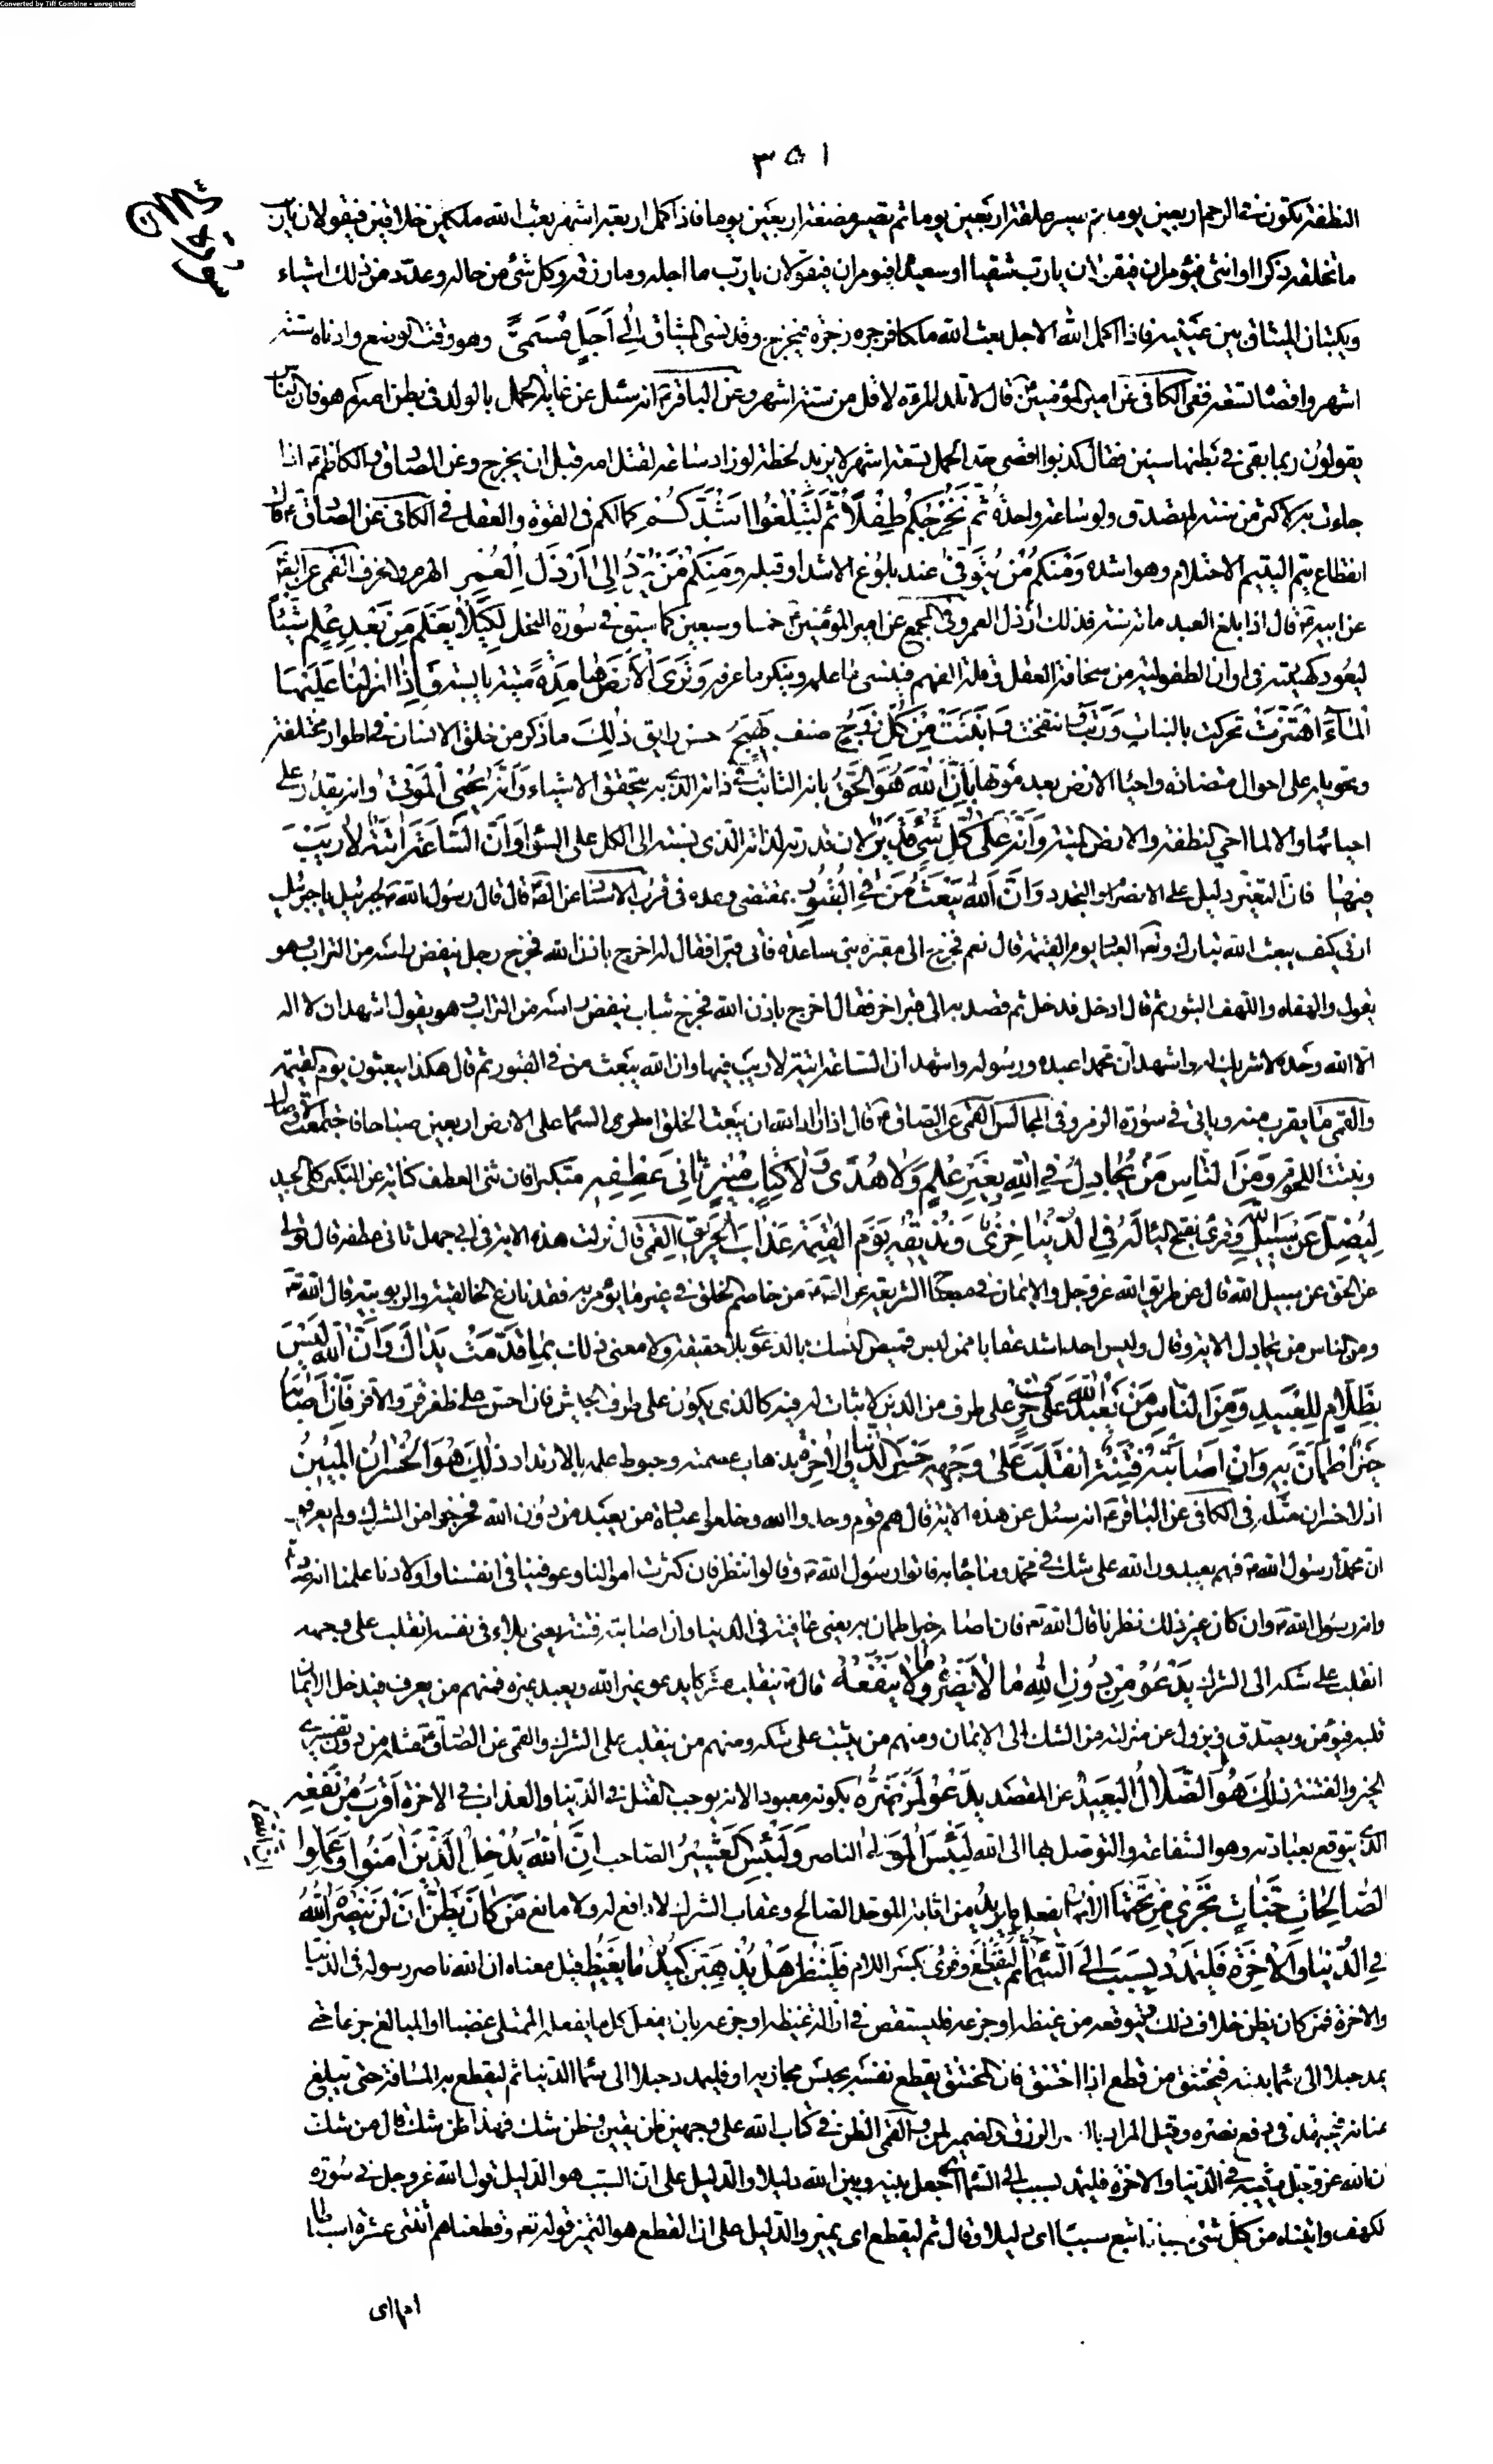 Converted by Tiff Combine - unregistered
٣٥١
سورة الحج
النطفة تكون في الرحم اربعين يوما ثم تصير علقة اربعين يوما ثم تصير مضغة اربعين يوما فاذا كمل اربعة اشهر بعث الله ملكين خلاقين فيقولان يا رب
ما تخلق ذكرا او انثى فيؤمران فيقولان يا رب شقيا او سعيدا فيؤمران فيقولان يا رب ما اجله وما رزقه وكل شئ من حاله وعدد من ذلك اشياء
ويكتبان الميثاق بين عينيه فاذا اكمل الله الاجل بعث الله ملكا فزجره زجرة فيخرج وقد نسى الميثاق اِلى اَجَلٍ مُسَمىًّ وهو وقت الوضع وادناه ستة
اشهر واقصاه تسعة ففى الكافى عن امير المؤمنين ع قال لا تلد المرءة لاقل من ستة اشهر وعن الباقر ع انه سئل عن غاية الحمل بالولد فى بطن امه كم هو فان الناس
يقولون ربما بقى فى بطنها سنين فقال كذبوا اقصى حد الحمل تسعة اشهر لا يزيد لحظة لو زاد ساعة لقتل امه قبل ان يخرج وعن الصادق والكاظم ع اذا
جاءت به لاكثر من سنة لم تصدق ولو ساعة واحدة ثُمَّ نُخْرِجُكُمْ طِفْلاً ثُمَّ لِتَبْلُغُوا اَشُدَّكُمْ كمالكم فى القوة والعقل فى الكافى عن الصادق ع قال
انقطاع يتم اليتيم الاحتلام وهو اشده وَمِنْكُمْ مَنْ يُتَوَفّى عند بلوغ الاشد او قبله وَمِنْكُمْ مَنْ يُرَدُّ اِلى اَرْذَلِ الْعُمُرِ الهرم والخرف القمى عن الصادق
عن ابيه ع قال اذا بلغ العبد مائة سنة فذلك ارذل العمر وفى المجمع عن امير المؤمنين ع خمسا وسبعين كما سبق فى سورة النحل لِكَيْلا يَعْلَمَ مِنْ بَعْدِ عِلْمٍ شَيْئاً
ليعود كهيئته فى اوان الطفولية من سخافة العقل وقلة الفهم فينسى ما علمه وينكر ما عرفه وَتَرَى الْاَرْضَ هامِدَةً ميتة يابسة فَاِذا اَنْزَلْنا عَلَيْهَا
الْمآءَ اهْتَزَّتْ تحركت بالنبات وَرَبَتْ وانتفخت وَاَنْبَتَتْ مِنْ كُلِّ زَوْجٍ صنف بَهِيجٍ حسن رايق ذلِكَ ما ذكر من خلق الانسان فى اطوار مختلفة
وتحويله على احوال متضادة واحياء الارض بعد موتها بِاَنَّ اللهَ هُوَ الْحَقُّ بانه الثابت فى ذاته الذى به يتحقق الاشياء وَاَنَّهُ يُحْيِى الْمَوْتى وانه يقدر على
احيائها والا لما احيى النطفة والارض الميتة وَاَنَّهُ عَلى كُلِّ شَئٍ قَدِيرٌ لان قدرته لذاته الذى نسبته الى الكل على السواء وَاَنَّ السّاعَةَ اتِيَةٌ لا رَيْبَ
فِيها فان التغير دليل على الانصرام والتجدد وَاَنَّ اللهَ يَبْعَثُ مَنْ فِى الْقُبُورِ بمقتضى وعده فى قرب الاسناد عن الصادق قال قال رسول الله ص لجبرئيل يا جبرئيل
ارنى كيف يبعث الله تبارك وتعالى العباد يوم القيمة قال نعم فخرج الى مقبرة بنى ساعدة فاتى قبرا فقال له اخرج باذن الله فخرج رجل ينفض راسه من التراب وهو
يقول والهفاه واللهف الثبور ثم قال ادخل فدخل ثم قصد به الى قبر اخر فقال اخرج باذن الله فخرج شاب ينفض راسه من التراب وهو يقول اشهد ان لا اله
الا الله وحده لا شريك له واشهد ان محمدا عبده ورسوله واشهد ان الساعة اتية لا ريب فيها وان الله يبعث من فى القبور ثم قال هكذا يبعثون يوم القيمة
والقمى ما يقرب منه وياتى فى سورة الزمر وفى المجالس القمى عن الصادق ع قال اذا اراد الله ان يبعث الخلق امطر السماء على الارض اربعين صباحا فاجتمعت الاوصال
ونبتت اللحوم وَمِنَ النّاسِ مَنْ يُجادِلُ فِى اللهِ بِغَيْرِ عِلْمٍ وَلا هُدىً وَلا كِتابٍ مُنِيرٍ ثانِىَ عِطْفِه متكبرا فان ثنى العطف كناية عن التكبر كلى الجيد
لِيُضِلَّ عَنْ سَبِيلِ اللهِ وقرئ بفتح الياء لَهُ فِى الدُّنْيا خِزْىٌ وَنُذِيقُهُ يَوْمَ الْقِيمَةِ عَذابَ الْحَرِيقِ القمى قال نزلت هذه الاية فى ابى جهل ثانى عطفه قال تولى
عن الحق عن سبيل الله قال عن طريق الله عز وجل والايمان فى مصباح الشريعة عن الصادق ع من خاصم الخلق فى غير ما يؤمر به فقد نازع الخالقية والربوبية قال الله تعالى
ومن الناس من يجادل الاية وقال وليس احد اشد عقابا ممن لبس قميص النسك بالدعوى بلا حقيقة ولا معنى ذلِكَ بِما قَدَّمَتْ يَداكَ وَاَنَّ اللهَ لَيْسَ
بِظَلّامٍ لِلْعَبِيدِ وَمِنَ النّاسِ مَنْ يَعْبُدُ اللهَ عَلى حَرْفٍ على طرف من الدين لا ثبات له فيه كالذى يكون على طرف الجيش فان احس على ظفر قر والا فر فَاِنْ اَصابَهُ
خَيْرٌ اطْمَاَنَّ بِه وَاِنْ اَصابَتْهُ فِتْنَةٌ انْقَلَبَ عَلى وَجْهِه خَسِرَ الدُّنْيا وَالْاخِرَةَ بذهاب عصمته وحبوط عمله بالارتداد ذلِكَ هُوَ الْخُسْرانُ الْمُبِينُ
اذ لا خسران مثله فى الكافى عن الباقر ع انه سئل عن هذه الاية قال هم قوم وحدوا الله وخلعوا عبادة من يعبد من دون الله فخرجوا من الشرك ولم يعرفوا
ان محمدا رسول الله ص فهم يعبدون الله على شك فى محمد وما جاء به فاتوا رسول الله ص وقالوا ننظر فان كثرت اموالنا وعوفينا فى انفسنا واولادنا علمنا انه صادق
وانه رسول الله ص وان كان غير ذلك نظرنا قال الله تعالى فان اصابه خير اطمان به يعنى عافية فى الدنيا وان اصابته فتنة يعنى بلاء فى نفسه انقلب على وجهه
انقلب على شكه الى الشرك يَدْعُوا مِنْ دُونِ اللهِ ما لا يَضُرُّهُ وَما لا يَنْفَعُهُ قال ع ينقلب مشركا يدعو غير الله ويعبد غيره فمنهم من يعرف فيدخل الايمان
قلبه فيؤمن ويصدق ويزول عن منزلته من الشك الى الايمان ومنهم من يثبت على شكه ومنهم من ينقلب على الشرك والقمى عن الصادق ع مثله من دون تفسيرى
الخير والفتنة ذلِكَ هُوَ الضَّلالُ الْبَعِيدُ عن المقصد يَدْعُوا لَمَنْ ضَرُّهُ بكونه معبودا لانه يوجب القتل فى الدنيا والعذاب فى الاخرة اَقْرَبُ مِنْ نَفْعِه
الذى يتوقع بعبادته وهو الشفاعة والتوصل بها الى الله لَبِئْسَ الْمَوْلى الناصر وَلَبِئْسَ الْعَشِيرُ الصاحب اِنَّ اللهَ يُدْخِلُ الَّذِينَ امَنُوا وَعَمِلُوا
الصّالِحاتِ جَنّاتٍ تَجْرِى مِنْ تَحْتِهَا الْاَنْهارُ اِنَّ اللهَ يَفْعَلُ ما يُرِيدُ من اثابة الموحد الصالح وعقاب المشرك لا دافع له ولا مانع مَنْ كانَ يَظُنُّ اَنْ لَنْ يَنْصُرَهُ اللهُ
فِى الدُّنْيا وَالْاخِرَةِ فَلْيَمْدُدْ بِسَبَبٍ اِلَى السَّمآءِ ثُمَّ لْيَقْطَعْ وقرئ بكسر اللام فَلْيَنْظُرْ هَلْ يُذْهِبَنَّ كَيْدُهُ ما يَغِيظُ قيل معناه ان الله ناصر رسوله فى الدنيا
والاخرة فمن كان يظن خلاف ذلك ويتوقعه من غيظه او جزعه فليستقص فى ازالة غيظه او جزعه بان يفعل كل ما يفعله الممتلى غضبا او المبالغ جزعا حتى
يمد حبلا الى سماء بيته فيختنق من قطع اذا اختنق فان المختنق يقطع نفسه بحبس مجاريه او فليمدد حبلا الى سماء الدنيا ثم ليقطع به المسافة حتى يبلغ
عنانه فيجتهد فى دفع نصره وقيل المراد بالنصر الرزق والضمير لمن والقمى الظن فى كتاب الله على وجهين ظن يقين وظن شك فهذا ظن شك قال من شك
ان الله عز وجل لم يثبه فى الدنيا والاخرة فليمدد بسبب الى السماء اى جعل بينه وبين الله دليلا والدليل على ان السبب هو الدليل قول الله عز وجل فى سورة
الكهف واتيناه من كل شئ سببا فاتبع سببا اى دليلا وقال ثم ليقطع اى يميز والدليل على ان القطع هو التميز قوله تعالى وقطعناهم اثنتى عشرة اسباطا
امما اى